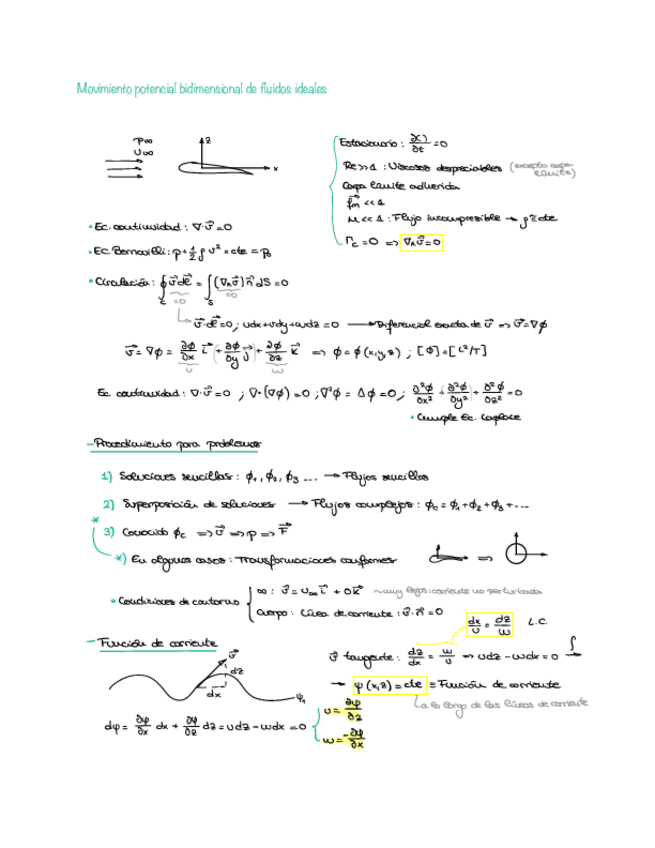 Movimiento potencial bidimensional de fluidos ideales
P∞
U∞
z
x
Estacionario : ∂( )/∂t = 0
Re >> 1 : Viscosos despreciables (excepto capa límite)
Capa límite adherida
f⃗m << 1
M << 1 : Flujo incompresible → ρ ≅ cte
Γc = 0 => ∇∧v⃗ = 0
• Ec. continuidad : ∇·v⃗ = 0
• Ec. Bernouilli : p + 1/2 ρ v² = cte = P₀
• Circulación : ∮c v⃗ dl⃗ = ∫s (∇∧v⃗) n⃗ dS = 0
=0
=0
v⃗·dl⃗ = 0 ; udx + vdy + wdz = 0 → Diferencial exacta de v⃗ => v⃗ = ∇ϕ
v⃗ = ∇ϕ = ∂ϕ/∂x i⃗ (+ ∂ϕ/∂y j⃗) + ∂ϕ/∂z k⃗ => ϕ = ϕ(x,y,z) ; [ϕ] = [L²/T]
u
w
Ec. continuidad : ∇·v⃗ = 0 ; ∇·(∇ϕ) = 0 ; ∇²ϕ = Δϕ = 0 ; ∂²ϕ/∂x² (+ ∂²ϕ/∂y²) + ∂²ϕ/∂z² = 0
• Cumple Ec. Laplace
- Procedimiento para problemas
1) Soluciones sencillas : ϕ₁, ϕ₂, ϕ₃ ... → Flujos sencillos
2) Superposición de soluciones → Flujos complejos : ϕc = ϕ₁ + ϕ₂ + ϕ₃ + ...
*
3) Conocido ϕc => v⃗ => p => F⃗
*) En algunos casos : Transformaciones conformes =>
• Condiciones de contorno
∞ : v⃗ = U∞ i⃗ + 0k⃗ ~ muy lejos : corriente no perturbada
Cuerpo : Línea de corriente : v⃗·n⃗ = 0
dx/u = dz/w L.C.
- Función de corriente
v⃗ tangente : dz/dx = w/u => udz - wdx = 0 ∫
v⃗
dz
dx
ψ₁
→ ψ(x,z) = cte ≡ Función de corriente
a lo largo de las líneas de corriente
dψ = ∂ψ/∂x dx + ∂ψ/∂z dz = udz - wdx = 0
u = ∂ψ/∂z
w = -∂ψ/∂x